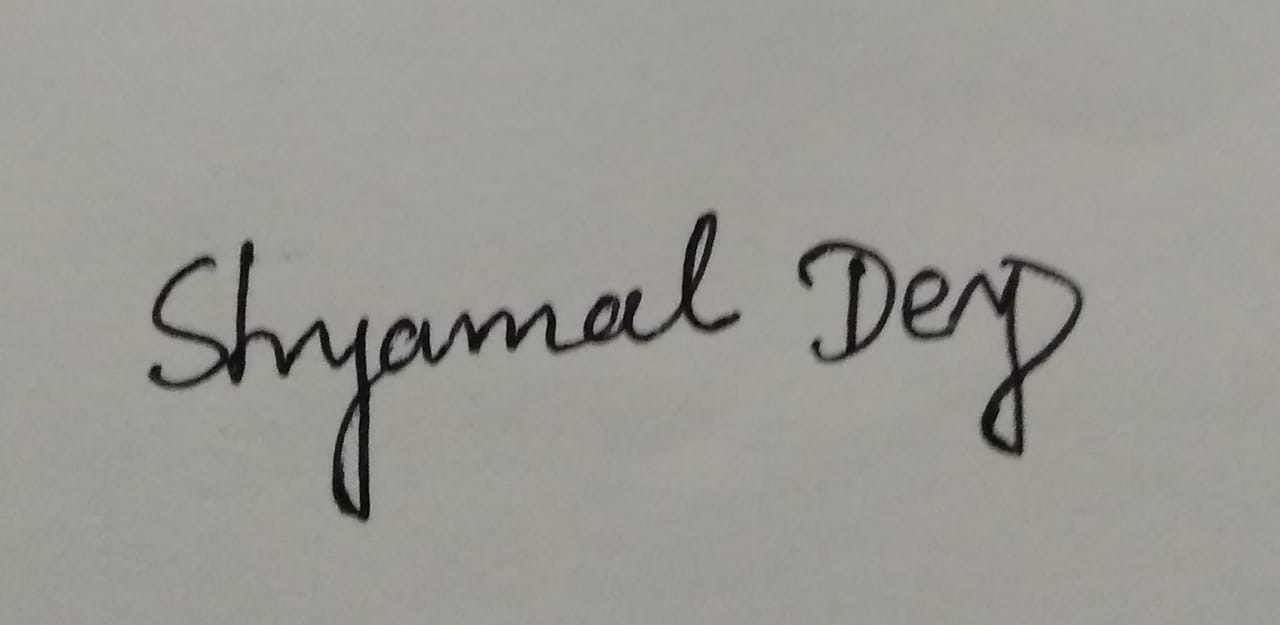 Shyamal Dey